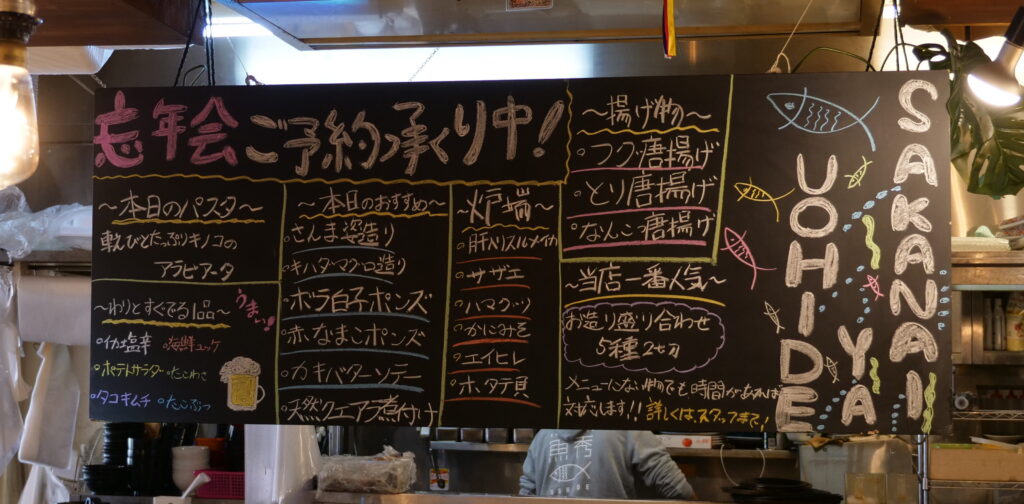 忘年会ご予約承り中!
~本日のパスタ~
軟びとたっぷりキノコの
アラビアータ
~わりとすぐでる1品~
うまい!!
・イカ塩辛 ・海鮮ユッケ
・ポテトサラダ ・たこわさ
・タコキムチ ・たこぶつ
~本日のおすすめ~
・さんま姿造り
・キハダマグロ造り
・ボラ白子ポンズ
・赤なまこポンズ
・カキバターソテー
・天然クエアラ煮付け
~炉端~
・肝ベスルメイカ
・サザエ
・ハマグリ
・かにみそ
・エイヒレ
・ホタテ貝
~揚げ物~
・フグ唐揚げ
・とり唐揚げ
・なんこつ唐揚げ
~当店一番人気~
お造り盛り合わせ
5種2切
メニューにない物でも時間があれば
対応します!!詳しくはスタッフまで!
SAKANAI
YA
UOHIDE
魚秀
UOHIDE